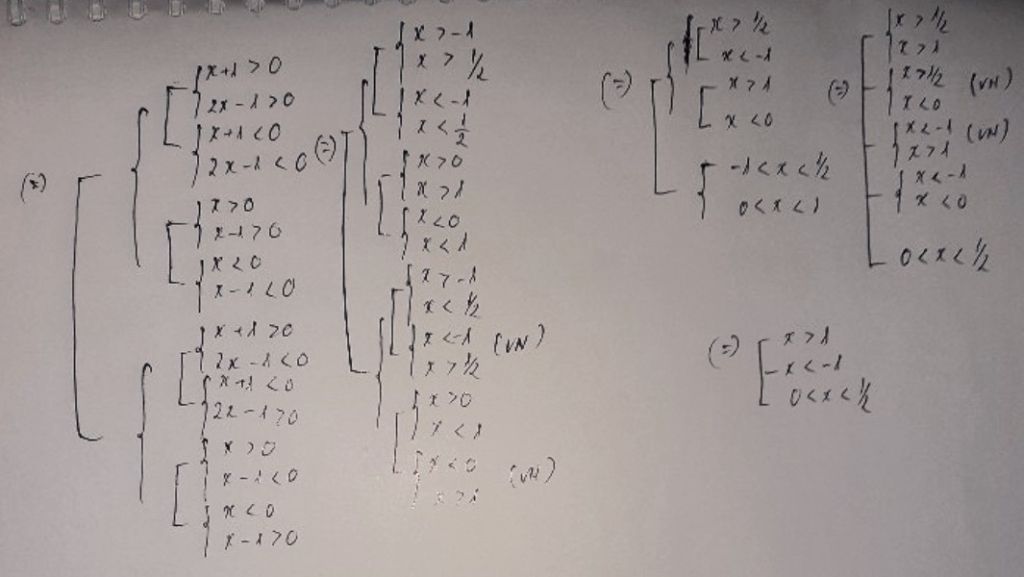 (*)
x+1 > 0
2x-1 > 0
x+1 < 0
2x-1 < 0
x > 0
x-1 > 0
x < 0
x-1 < 0
x+1 > 0
2x-1 < 0
x+1 < 0
2x-1 > 0
x > 0
x-1 < 0
x < 0
x-1 > 0
(=)
x > -1
x > 1/2
x < -1
x < 1/2
x > 0
x > 1
x < 0
x < 1
x > -1
x < 1/2
x < -1 (VN)
x > 1/2
x > 0
x < 1
x < 0 (VN)
x > 1
(=)
x > 1/2
x < -1
x > 1
x < 0
-1 < x < 1/2
0 < x < 1
(=)
x > 1/2
x > 1
x > 1/2 (VN)
x < 0
x < -1 (VN)
x > 1
x < -1
x < 0
0 < x < 1/2
(=)
x > 1
x < -1
0 < x < 1/2